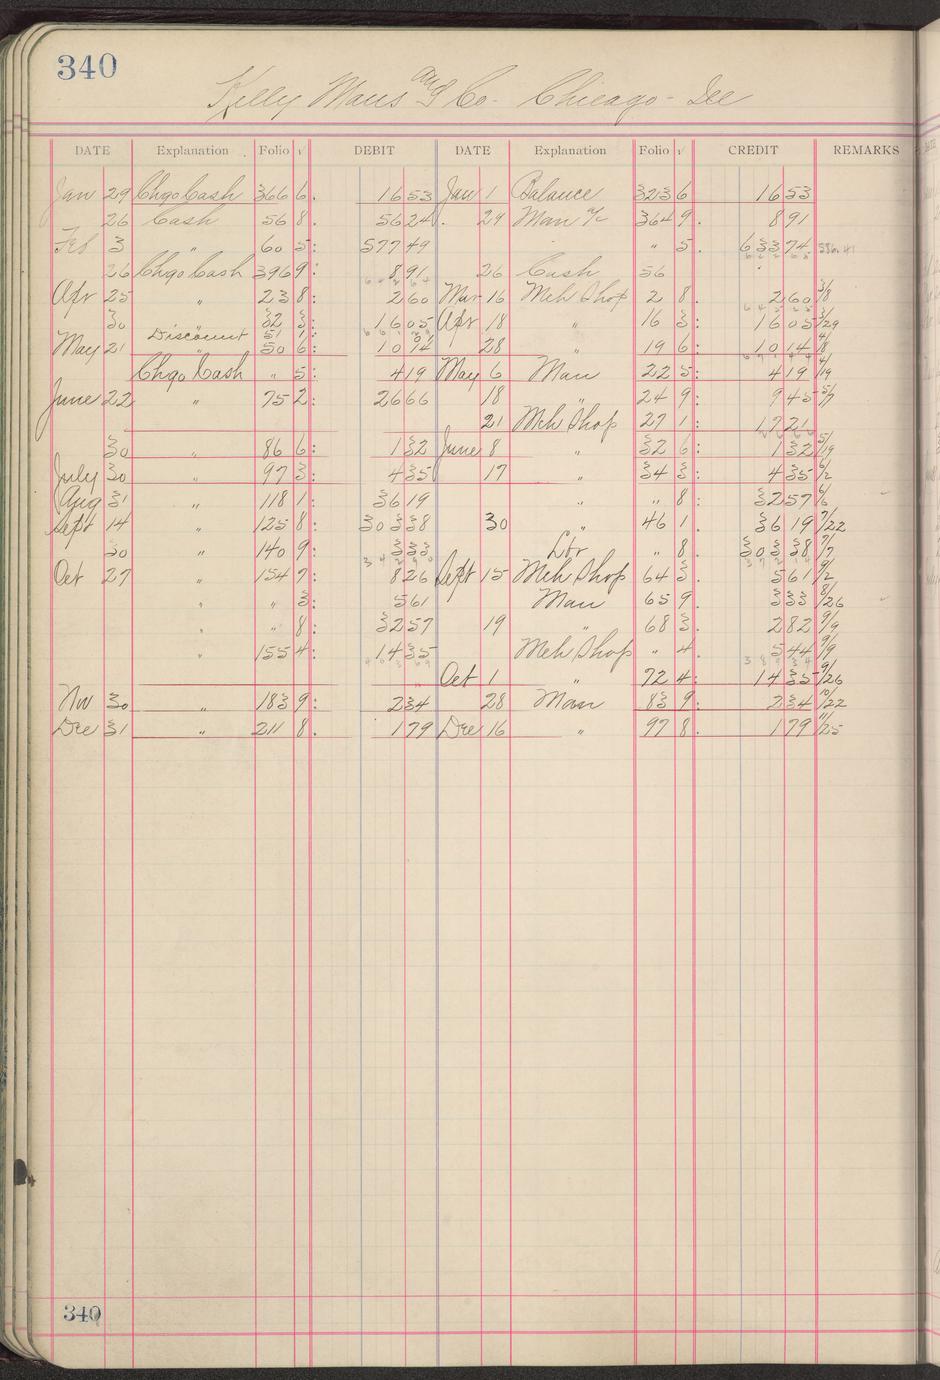 340
Kelly Maus and Co. Chicago - Ill
DATE Explanation Folio √ DEBIT DATE Explanation Folio √ CREDIT REMARKS
Jan 29 Chgo Cash 366 6. 16 53 Jan 1 Balance 323 6 16 53
26 Cash 56 8. 56 24 . 24 Man a/c 364 9. 8 91
Feb 3 " 60 5: 577 49 " 5. 633 74 586.41
26 Chgo Cash 396 9: 8 91 26 Cash 56
Apr 25 " 23 8: 2 60 Mar 16 Mch Shop 2 8. 2 60 3/8
30 " 32 3: 16 05 Apr 18 " 16 3: 16 05 3/29
Discount 51 1:
May 21 50 6: 10 14 28 " 19 6: 10 14 4/8
Chgo Cash " 5: 4 19 May 6 Man 22 5: 4 19 4/19
June 22 " 75 2: 26 66 18 " 24 9: 9 45 5/7
21 Mch Shop 27 1: 17 21
30 " 86 6: 1 32 June 8 " 32 6: 1 32 5/19
July 30 " 97 3: 4 35 17 " 34 3: 4 35 6/2
Aug 31 " 118 1: 36 19 " " 8: 32 57 6/6
Sept 14 " 125 8: 303 38 30 " 46 1. 36 19 7/22
30 " 140 9: 3 33 Lbr " 8. 303 38 7/7
Oct 27 " 154 7: 8 26 Sept 15 Mch Shop 64 3. 5 61 9/2
" " 3: 5 61 Man 65 9. 3 33 8/26
" " 8: 32 57 19 " 68 3. 2 82 9/9
" 155 4: 14 35 Mch Shop " 4. 5 44 9/9
Oct 1 " 72 4: 14 35 9/26
Nov 30 " 183 9: 2 34 28 Man 83 9. 2 34 10/22
Dec 31 " 211 8. 1 79 Dec 16 " 97 8. 1 79 11/25
340